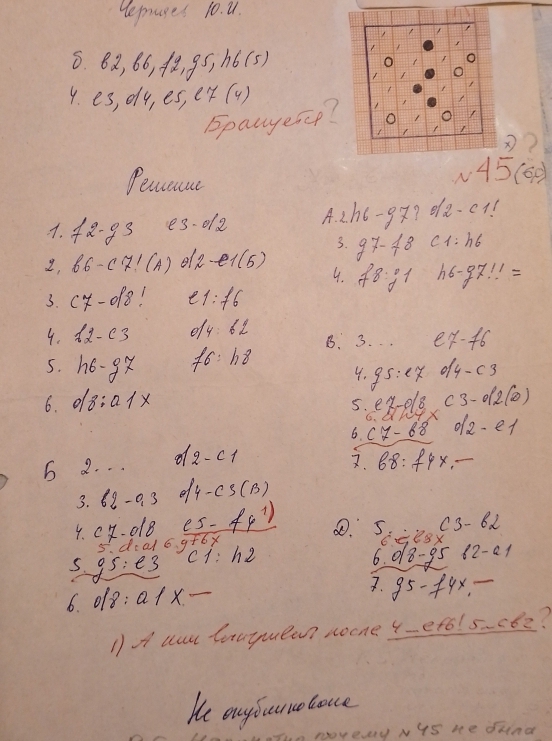 Черняев Ю.И.
б. b2, b6, f2, g5, h6 (5)
ч. e3, d4, e5, e7 (4)
Бракуется?
?
№45 (бр)
Решение
1. f2-g3 e3-d2
2. b6-c7! (А) d2-e1 (Б)
3. c7-d8! e1:f6
4. b2-c3 d4:b2
5. h6-g7 f6:h8
6. d8:a1 x
А. 2. h6-g7? d2-c1!
3. g7-f8 c1:h6
4. f8:g1 h6-g7!! =
Б 2... d2-c1
3. b2-a3 d4-c3 (В)
4. c7-d8 e5-f4 1)
5. d:a1 6. g7f6x
5. g5:e3 c1:h2
6. d8:a1 x.—
В. 3... e7-f6
4. g5:e7 d4-c3
5. e7-d8 c3-d2 (Д)
6. c7-b8 d2-e1
7. b8:f4x.—
Д. 5. ... c3-b2
6. d8-g5 b2-a1
7. g5-f4x.—
1) А как выигрывать после 4...ef6! 5...cb2?
Не опубликована
почему №45 не была